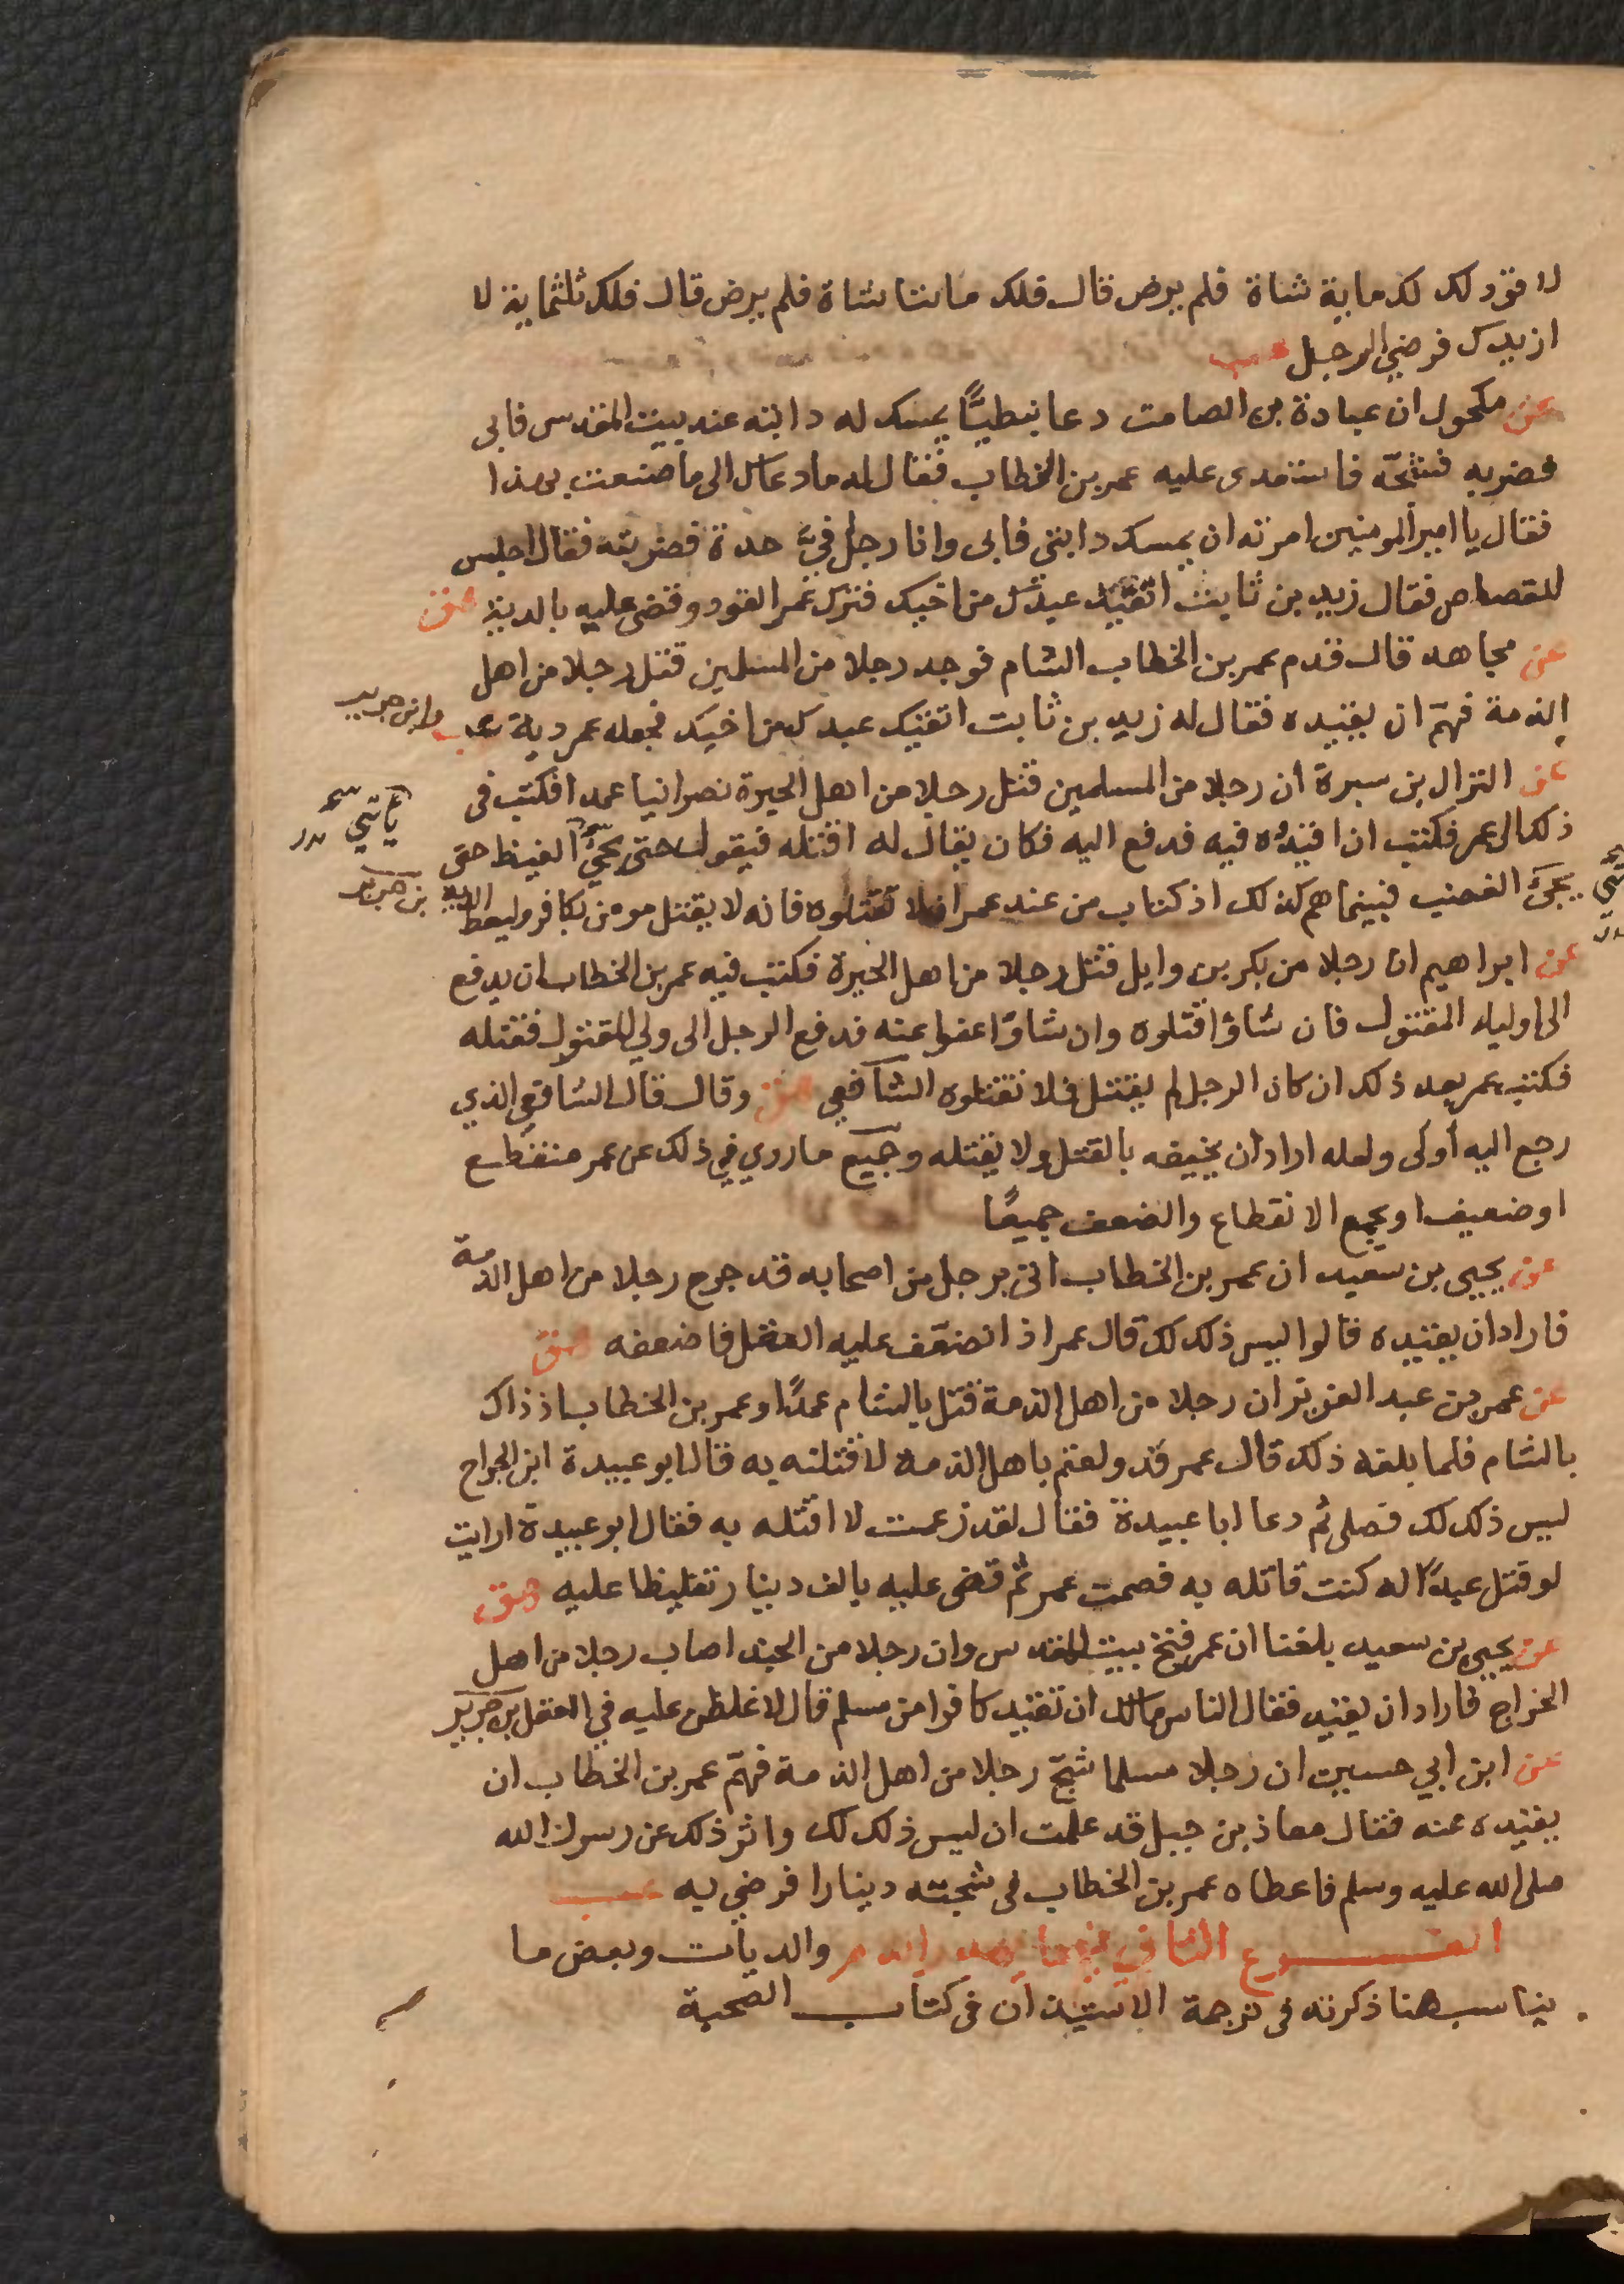 لا قود لك لك ماية شاة فلم يرض قال فلك مايتا شاة فلم يرض قال فلك ثلثماية لا
ازيدك فرضي الرجل عب
عن مكحول ان عبادة بن الصامت دعا نبطيًّا يمسك له دابته عند بيت المقدس فابى
فضربه فشجّه فاستعدى عليه عمر بن الخطاب فقال له ما دعاك الى ما صنعت بهذا
فقال يا امير المومنين امرته ان يمسك دابتي فابى وانا رجل فيّ حدة فضربته فقال اجلس
للقصاص فقال زيد بن ثابت اتقيد عبدك من اخيك فترك عمر القود وقضى عليه بالدية هق
عن مجاهد قال قدم عمر بن الخطاب الشام فوجد رجلا من المسلمين قتل رجلا من اهل
الذمة فهمّ ان يقيده فقال له زيد بن ثابت اتقيد عبدك من اخيك فجعله عمر دية عب وابن جرير
عن النزال بن سبرة ان رجلا من المسلمين قتل رجلا من اهل الحيرة نصرانيا عمدا فكتب في
ذلك الى عمر فكتب ان اقيدوه فيه فدفع اليه فكان يقال له اقتله فيقول حتى يجيّ الغيظ حتى
يجيَ الغضب فبينما هم كذلك اذ كتاب من عند عمر ان لا تقتلوه فانه لا يقتل مومن بكافر وليعط الدية بن جرير
عن ابراهيم ان رجلا من بكر بن وايل قتل رجلا من اهل الحيرة فكتب فيه عمر بن الخطاب ان يدفع
الى اولياء المقتول فان شاؤا قتلوه وان شاؤا عفوا عنه فدفع الرجل الى ولي المقتول فقتله
فكتب عمر بعد ذلك ان كان الرجل لم يقتل فلا تقتلوه الشافعي هق وقال قال الشافعي الذي
رجع اليه أولى ولعله اراد ان يخيفه بالقتل ولا يقتله وجميع ما روي في ذلك عن عمر منقطع
او ضعيف او يجمع الانقطاع والضعف جميعًا
عن يحيى بن سعيد ان عمر بن الخطاب اتى برجل من اصحابه قد جرح رجلا من اهل الذمة
فاراد ان يقيده قالوا ليس ذلك لك قال عمر اذا نضعّف عليه العقل فاضعفه هق
عن عمر بن عبد العزيز ان رجلا من اهل الذمة قتل بالشام عمدًا وعمر بن الخطاب اذ ذاك
بالشام فلما بلغه ذلك قال عمر قد ولعتم باهل الذمة لاقتلنه به قال ابو عبيدة ابن الجراح
ليس ذلك لك فصلى ثم دعا ابا عبيدة فقال لقد زعمت لا اقتله به فقال ابو عبيدة ارايت
لو قتل عبدًا له كنت قاتله به فصمت عمر ثم قضى عليه بالف دينار تغليظا عليه هق
عن يحيى بن سعيد بلغنا ان عمر فتح بيت المقدس وان رجلا من الجند اصاب رجلا من اهل
الخراج فاراد ان يقيد فقال الناس مالك ان تقيد كافرا من مسلم قال لاغلظن عليه في العقل بن جرير
عن ابن ابي حسين ان رجلا مسلما شجّ رجلا من اهل الذمة فهمّ عمر بن الخطاب ان
يقيده عنه فقال معاذ بن جبل قد علمت ان ليس ذلك لك واثر ذلك عن رسول الله
صلى الله عليه وسلم فاعطاه عمر بن الخطاب في شجته دينارا فرضي به عب
الفرع الثاني فيما يهدر الدم والديات وبعض ما
يناسب هنا ذكرته في ترجمة الاستيذان في كتاب الصحبة